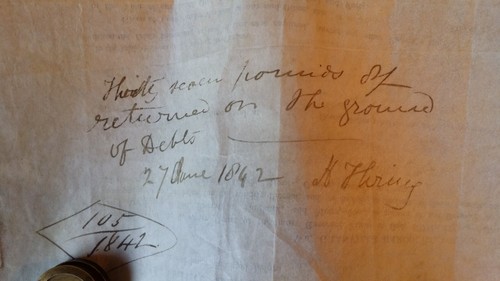 Thirty seven pounds
returned on the ground
of Debts
27 June 1842 Thring
105
1842